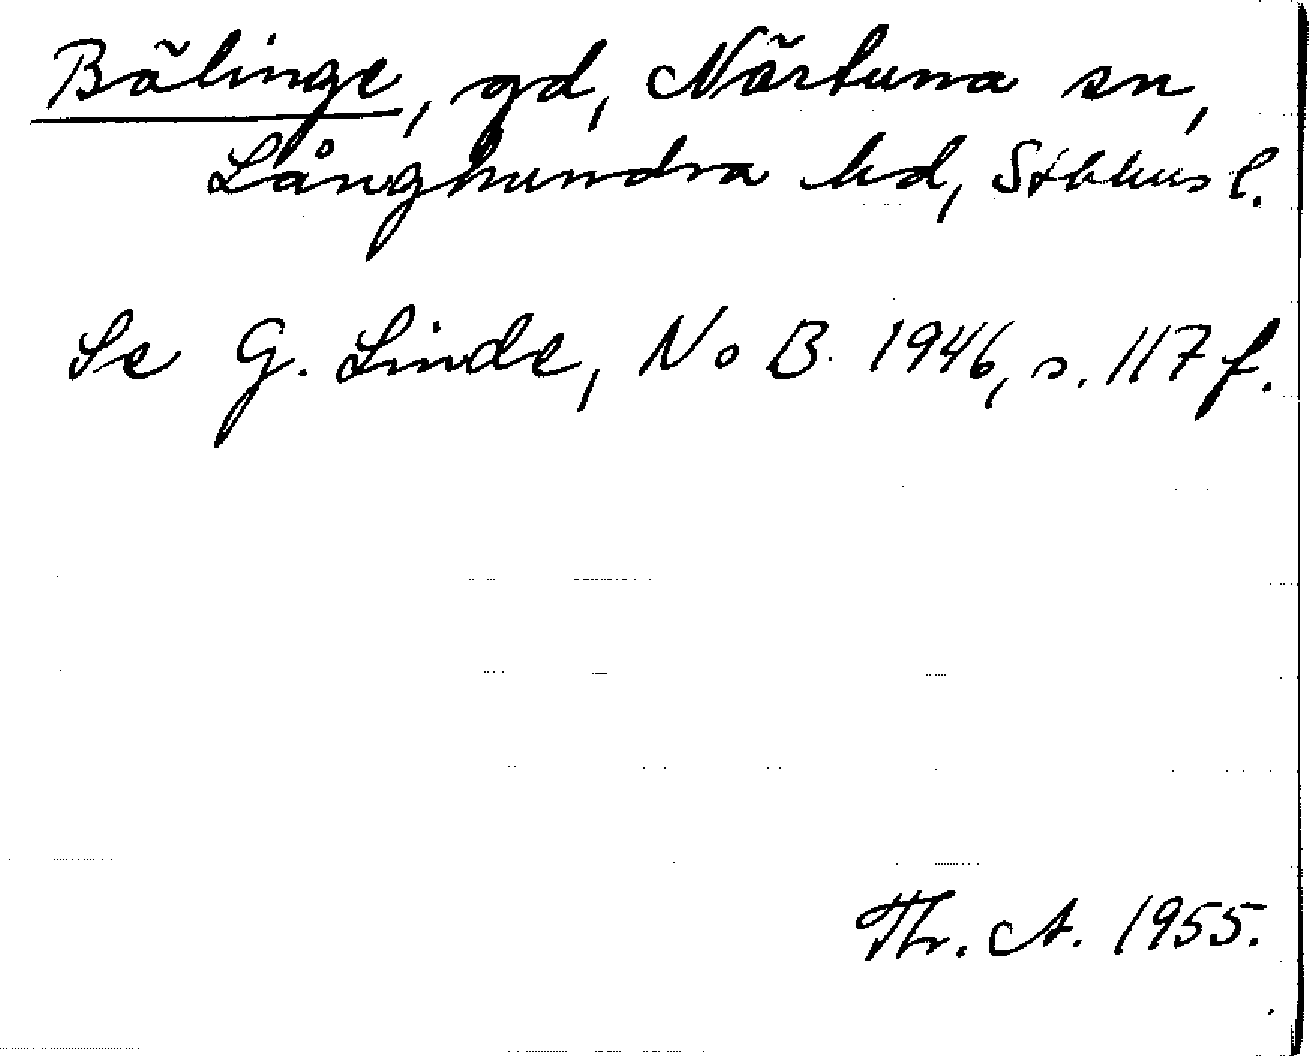 Bälinge, gd, Närtuna sn,
Långhundra hd, Sthlms l.
Se G. Linde, NoB. 1946, s. 117 f.
Th. A. 1955.